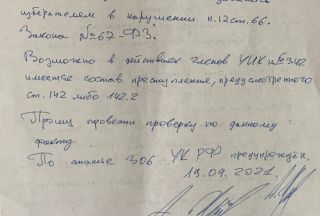 избирателем в нарушении п.12 ст.66.
Закона №67-ФЗ.
Возможно в действиях членов УИК №342
имеется состав преступления, предусмотренного
ст.142 либо 142.2
Прошу провести проверку по данному
факту
По статье 306 УК РФ предупреждён.
19.09.2021